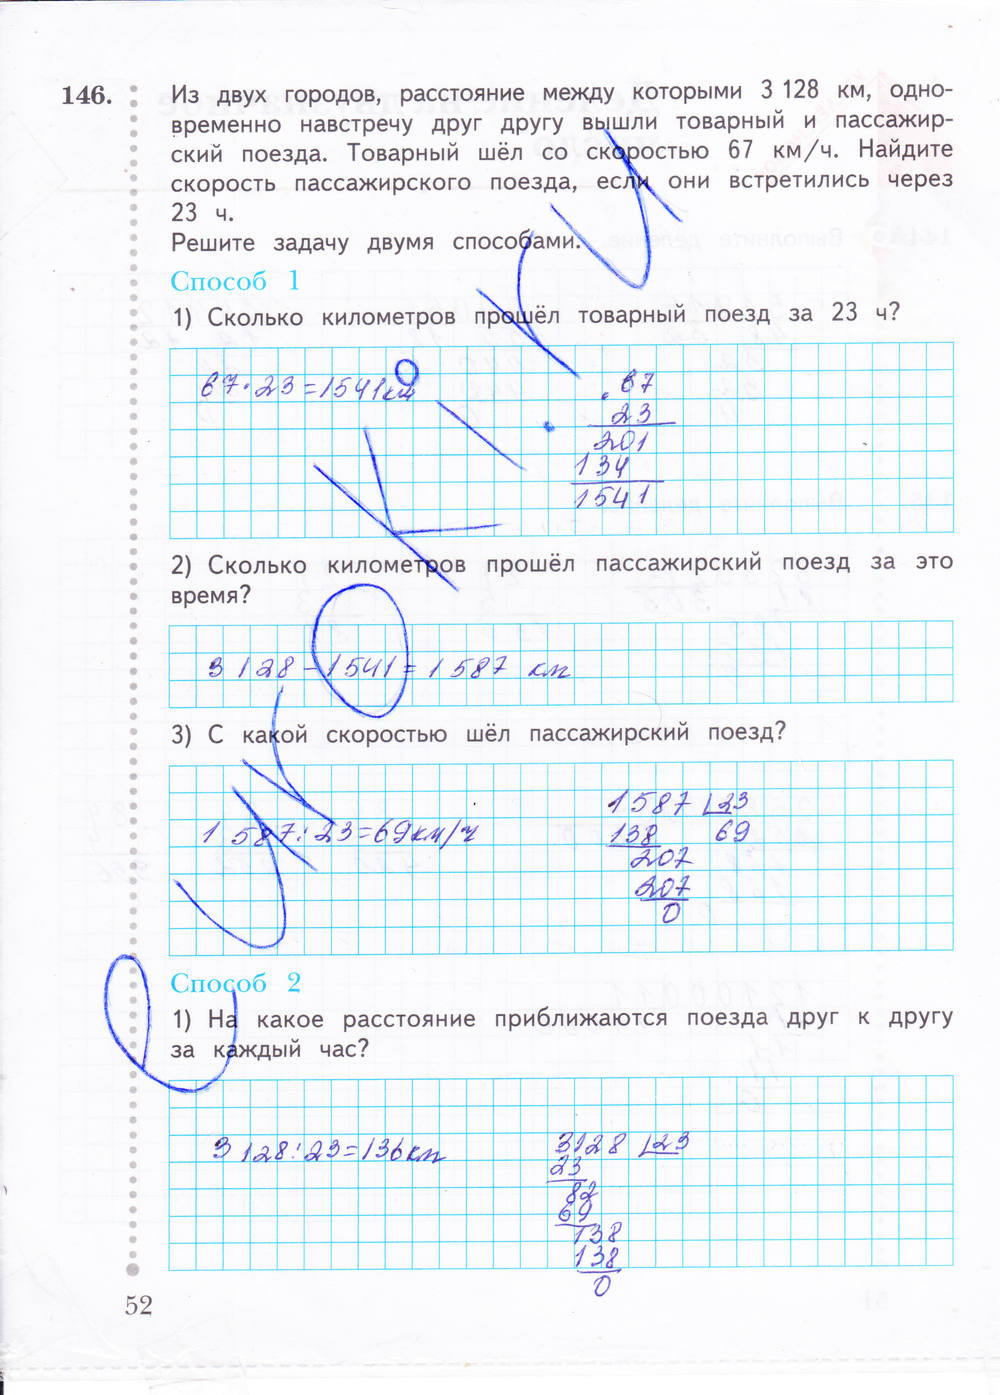 146.
Из двух городов, расстояние между которыми 3 128 км, одно-
временно навстречу друг другу вышли товарный и пассажир-
ский поезда. Товарный шёл со скоростью 67 км/ч. Найдите
скорость пассажирского поезда, если они встретились через
23 ч.
Решите задачу двумя способами.
Способ 1
1) Сколько километров прошёл товарный поезд за 23 ч?
67·23=1541км
67
23
201
134
1541
2) Сколько километров прошёл пассажирский поезд за это
время?
3 128 - 1541 = 1 587 км
3) С какой скоростью шёл пассажирский поезд?
1 587 : 23=69км/ч
1587 23
138 69
207
207
0
Способ 2
1) На какое расстояние приближаются поезда друг к другу
за каждый час?
3 128:23=136км
3128 23
23
82
69
138
138
0
52